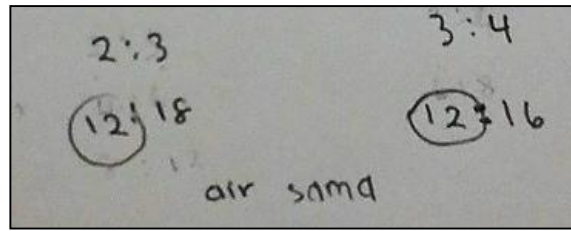 2:3 3:4
12:18 12:16
air sama